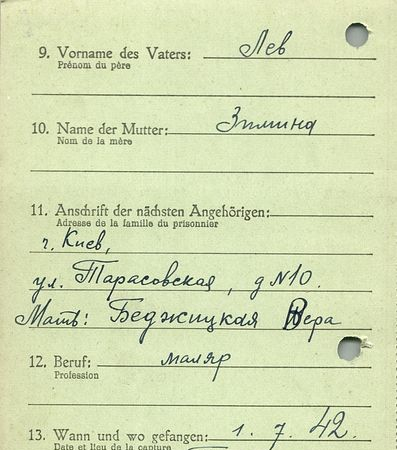 9. Vorname des Vaters: Лев
Prénom du père
10. Name der Mutter: Зимина
Nom de la mère
11. Anschrift der nächsten Angehörigen:
Adresse de la famille du prisonnier
г. Киев,
ул. Тарасовская, д N10.
Мать: Беджицкая Вера
12. Beruf: маляр
Profession
13. Wann und wo gefangen: 1. 7. 42.
Date et lieu de la capture